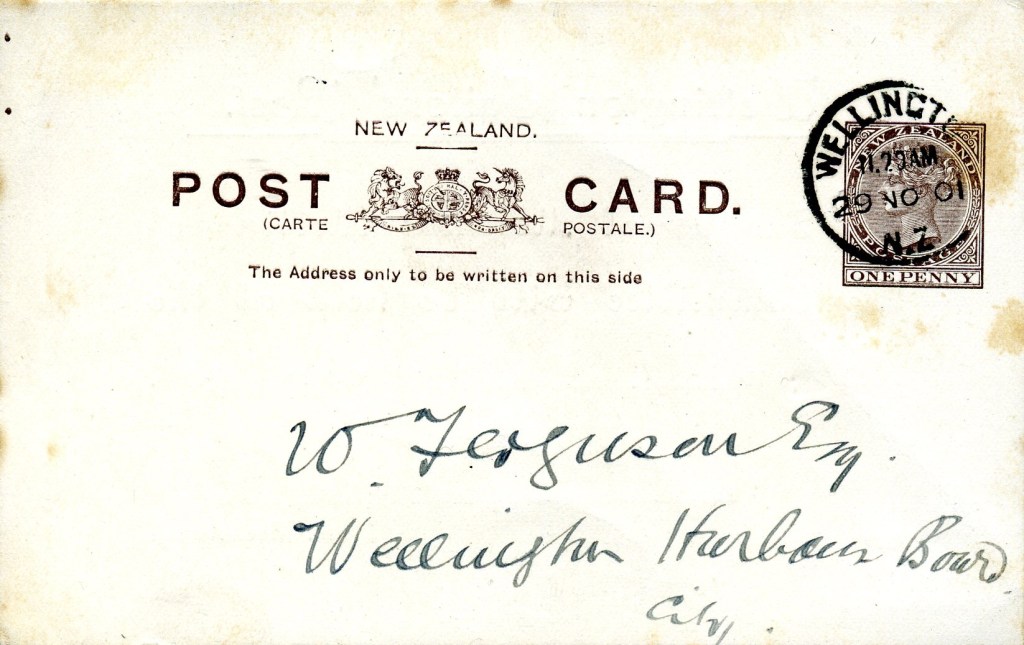 NEW ZEALAND.
POST CARD.
(CARTE POSTALE.)
The Address only to be written on this side
WELLINGT
29 NO 01
N.Z
NEW ZEALAND
ONE PENNY
W. Ferguson Esq.
Wellington Harbour Board
City.